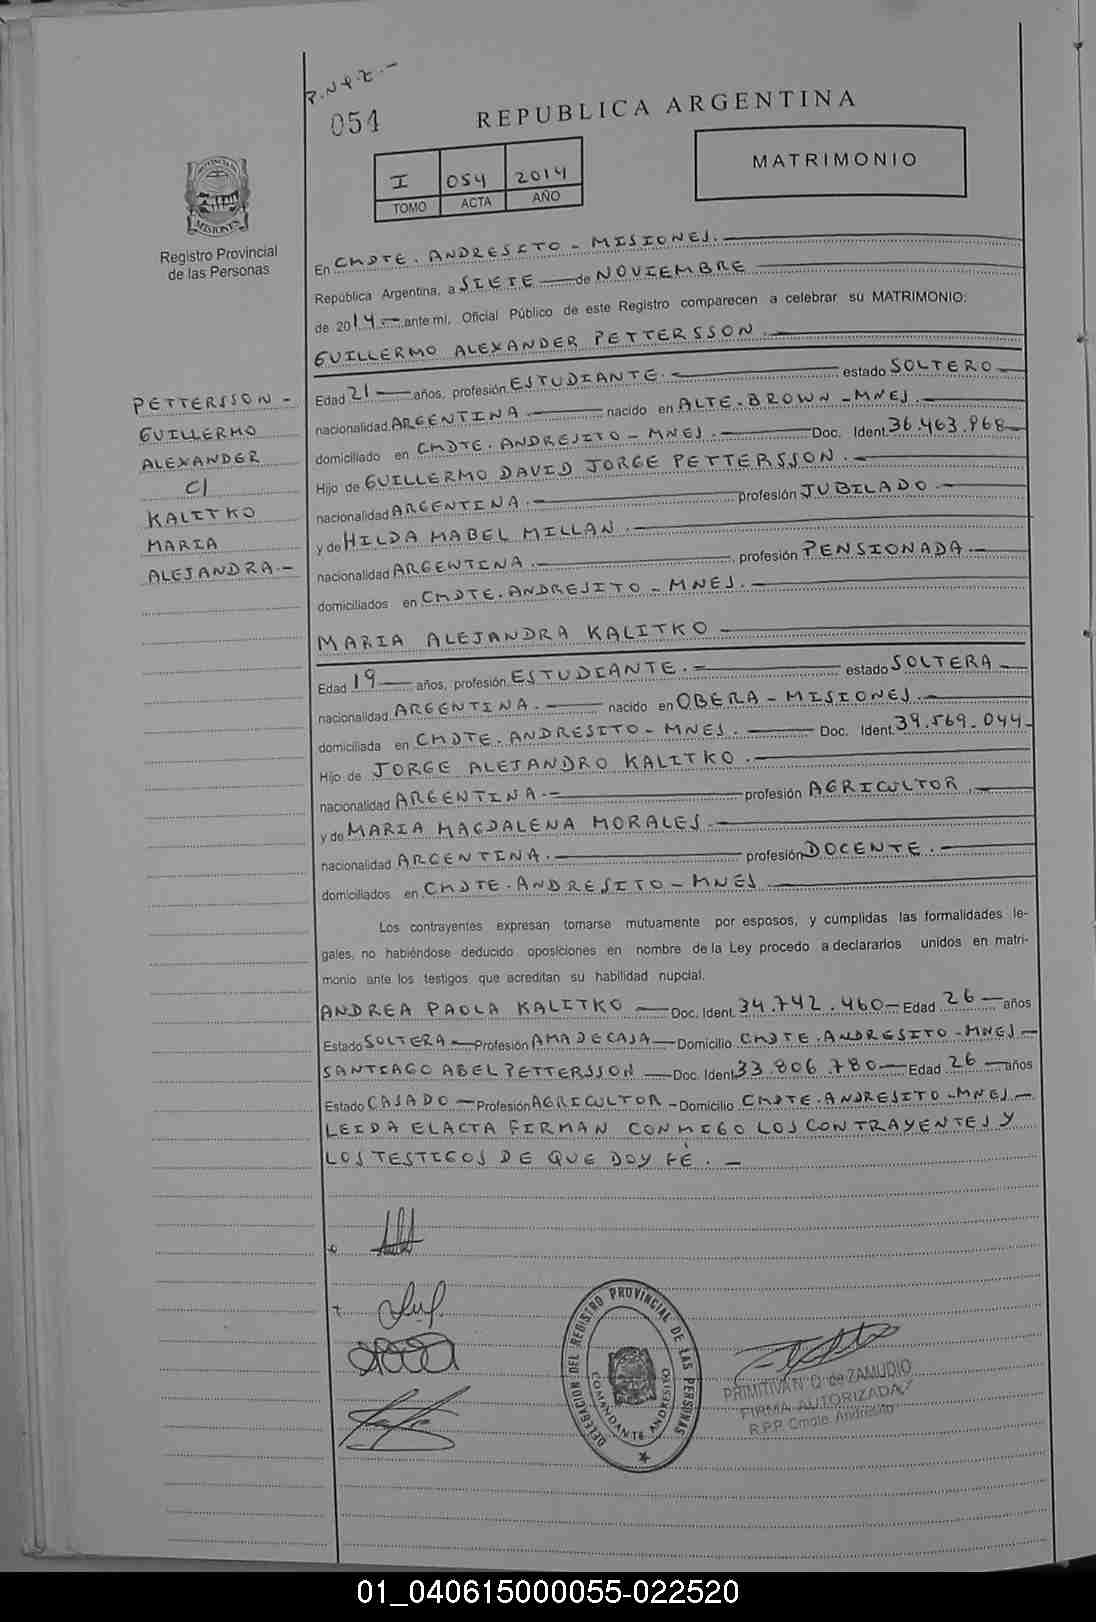 P.N y Z.-
054
REPUBLICA ARGENTINA
I 054 2014
TOMO ACTA AÑO
MATRIMONIO
PROVINCIA DE
MISIONES
Registro Provincial
de las Personas
En CMDTE. ANDRESITO - MISIONES.
República Argentina, a SIETE de NOVIEMBRE
de 2014 ante mí, Oficial Público de este Registro comparecen a celebrar su MATRIMONIO:
GUILLERMO ALEXANDER PETTERSSON.
Edad 21 años, profesión ESTUDIANTE. estado SOLTERO
nacionalidad ARGENTINA. nacido en ALTE. BROWN - MNES.
domiciliado en CMDTE. ANDRESITO - MNES. Doc. Ident. 36.463.968
Hijo de GUILLERMO DAVID JORGE PETTERSSON.
nacionalidad ARGENTINA. profesión JUBILADO
y de HILDA MABEL MILLAN.
nacionalidad ARGENTINA. profesión PENSIONADA.
domiciliados en CMDTE. ANDRESITO - MNES.
PETTERSSON -
GUILLERMO
ALEXANDER
C/
KALITKO
MARIA
ALEJANDRA.-
MARIA ALEJANDRA KALITKO
Edad 19 años, profesión ESTUDIANTE. estado SOLTERA
nacionalidad ARGENTINA. nacido en OBERA - MISIONES.
domiciliada en CMDTE. ANDRESITO - MNES. Doc. Ident. 39.569.044
Hijo de JORGE ALEJANDRO KALITKO.
nacionalidad ARGENTINA. profesión AGRICULTOR.
y de MARIA MAGDALENA MORALES.
nacionalidad ARGENTINA. profesión DOCENTE.
domiciliados en CMDTE. ANDRESITO - MNES
Los contrayentes expresan tomarse mutuamente por esposos, y cumplidas las formalidades le-
gales, no habiéndose deducido oposiciones en nombre de la Ley procedo a declararlos unidos en matri-
monio ante los testigos que acreditan su habilidad nupcial.
ANDREA PAOLA KALITKO Doc. Ident. 34.742.460 Edad 26 años
Estado SOLTERA Profesión AMA DE CASA Domicilio CMDTE. ANDRESITO - MNES
SANTIAGO ABEL PETTERSSON Doc. Ident. 33.806.780 Edad 26 años
Estado CASADO Profesión AGRICULTOR Domicilio CMDTE. ANDRESITO - MNES
LEIDA EL ACTA FIRMAN CONMIGO LOS CONTRAYENTES Y
LOS TESTIGOS DE QUE DOY FÉ.
DELEGACION DEL REGISTRO PROVINCIAL DE LAS PERSONAS
COMANDANTE ANDRESITO
PRIMITIVA N. Q. de ZAMUDIO
FIRMA AUTORIZADA
R.P.P. Cmdte. Andresito
01_040615000055-022520